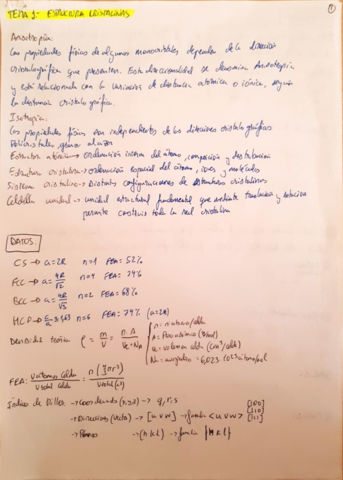 TEMA 1- ESTRUCTURA CRISTALINAS
1
Anisotropía:
Las propiedades físicas de algunos monocristales dependen de la dirección
cristalográfica que presenten. Esta direccionalidad se denomina Anisotropía
y está relacionada con la variación de distancia atómica o iónica, según
la dirección cristalográfica.
Isotropía:
Las propiedades físicas son independientes de las direcciones cristalográficas
Policristales, granos al azar
Estructura atómica → ordenación interna del átomo, composición y distribución
Estructura cristalina → ordenación espacial del átomo, iones y moléculas
Sistema cristalino → Distintas configuraciones de estructuras cristalinas
Celdilla unidad → unidad estructural fundamental que mediante traslación y rotación
permite construir toda la red cristalina
DATOS:
CS → a=2R n=1 FEA=52%
FCC → a=4R/√2 n=4 FEA=74%
BCC → a=4R/√3 n=2 FEA=68%
HCP → c/a=1,63 n=6 FEA=74% (a=2R)
Densidad teórica ρ = m/V = n·A/Vc·NA
n: nº átomos/celda
A: Peso atómico (g/mol)
Vc: volumen celda (cm³/celda)
NA: avogadro = 6,023·10²³ átomos/mol
FEA: Vátomos celda/Vtotal celda =
Índices de Miller → Coordenadas (x,y,z) → q,r,s
→ Direcciones (vector) → [u v w] → familia <u v w> [100] [110] [111]
→ Planos → (h k l) → familia {h k l}